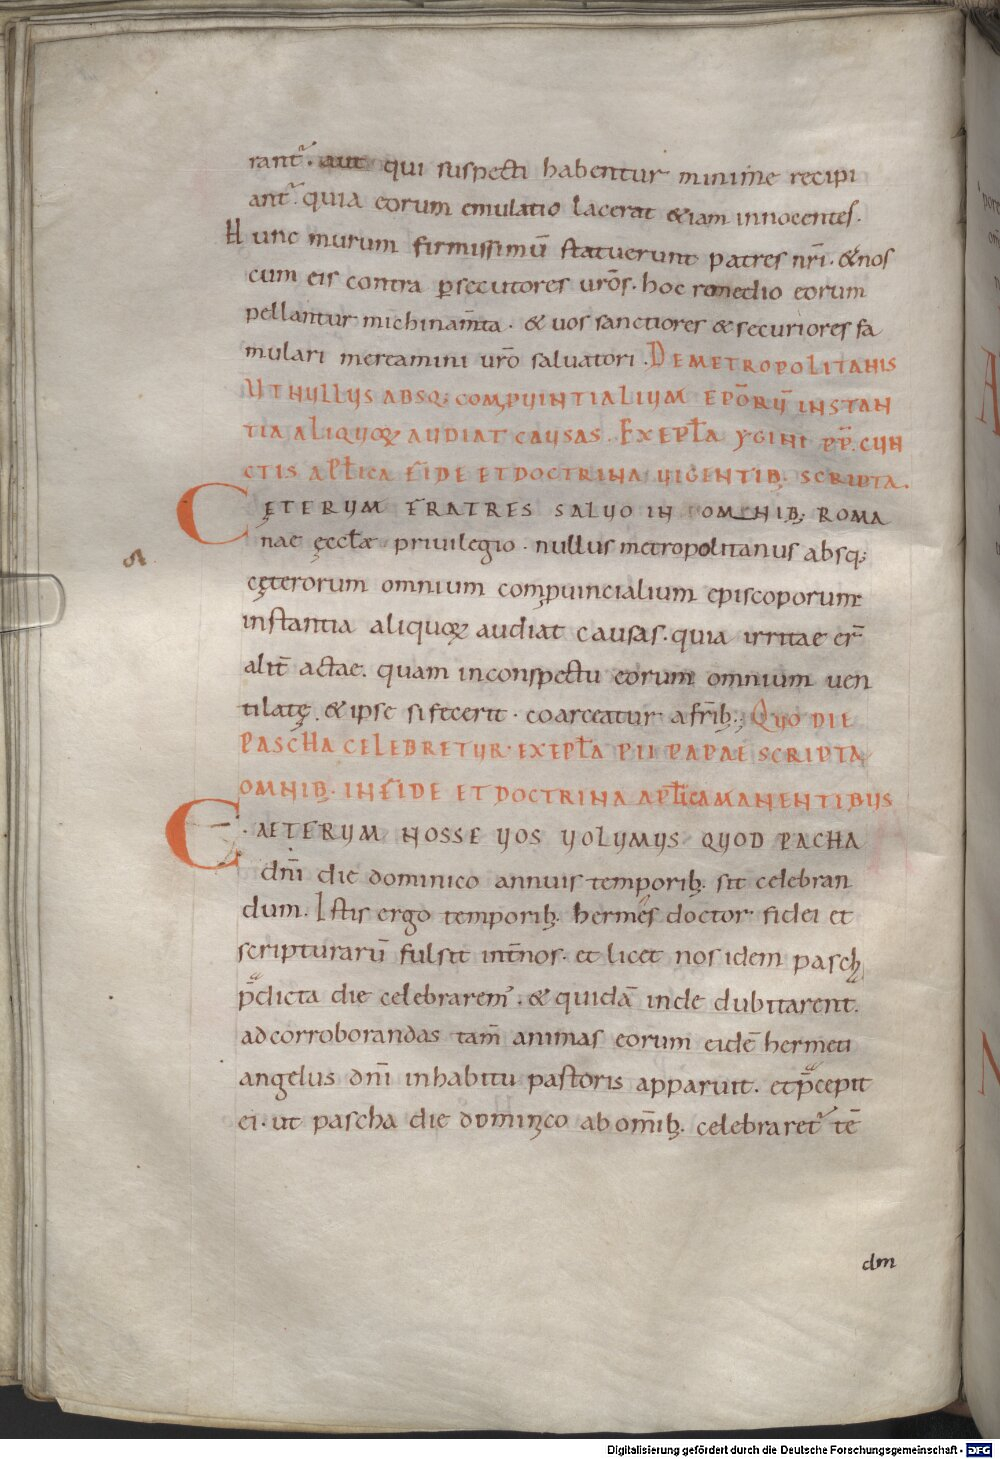 rant᷒. aut qui suspecti habentur minime recipi
ant᷒. quia eorum emulatio lacerat &iam innocentes.
Hunc murum firmissimū statuerunt patres nr̄i. & nos
cum eis contra ꝑsecutores urōs. hoc remedio eorum
pellantur michinam̄ta. & uos sanctiores & securiores fa
mulari mereamini urō saluatori. DEMETROPOLITANIS
UTNULLUS ABSQ; COMPUINTIALIUM EPŌRŪ INSTAN
TIA ALIQUOꝜ AUDIAT CAUSAS. EXEPL̄A YGINI PP̄. CUN
CTIS APL̄ICA FIDE ET DOCTRINA UIGENTIB; SCRIPTA.
CETERUM FRATRES SALUO IN OMNIB; ROMA
nae ęccl̄ae priuilegio. nullus metropolitanus absq;
cęterorum omnium comꝓuincialium episcoporum
instantia aliquoꝝ audiat causas. quia irritae er̄
alit̄ actae. quam inconspectu eorum omnium uen
tilatę. & ipse si fecerit. coarceatur a fr̄ib; QUO DIE
PASCHA CELEBRETUR. EXEPL̄A PII PAPAE SCRIPTA
OMNIB. IN FIDE ET DOCTRINA APL̄ICA MANENTIBUS
CAETERUM NOSSE UOS UOLUMUS QUOD PACHA
dn̄i die dominico annuis temporib; sit celebran
dum. Istis ergo temporib; hermes doctor fidei et
scripturarū fulsit int̄nos. et licet nos idem pasch
p̄dicta die celebrarem᷒. & quidā inde dubitarent.
ad corroborandas tam̄ animas eorum eidē hermeti
angelus dn̄i inhabitu pastoris apparuit. et p̄cepit
ei. ut pascha die dominco ab om̄ib; celebraret᷒ tē
dm
Digitalisierung gefördert durch die Deutsche Forschungsgemeinschaft - DFG